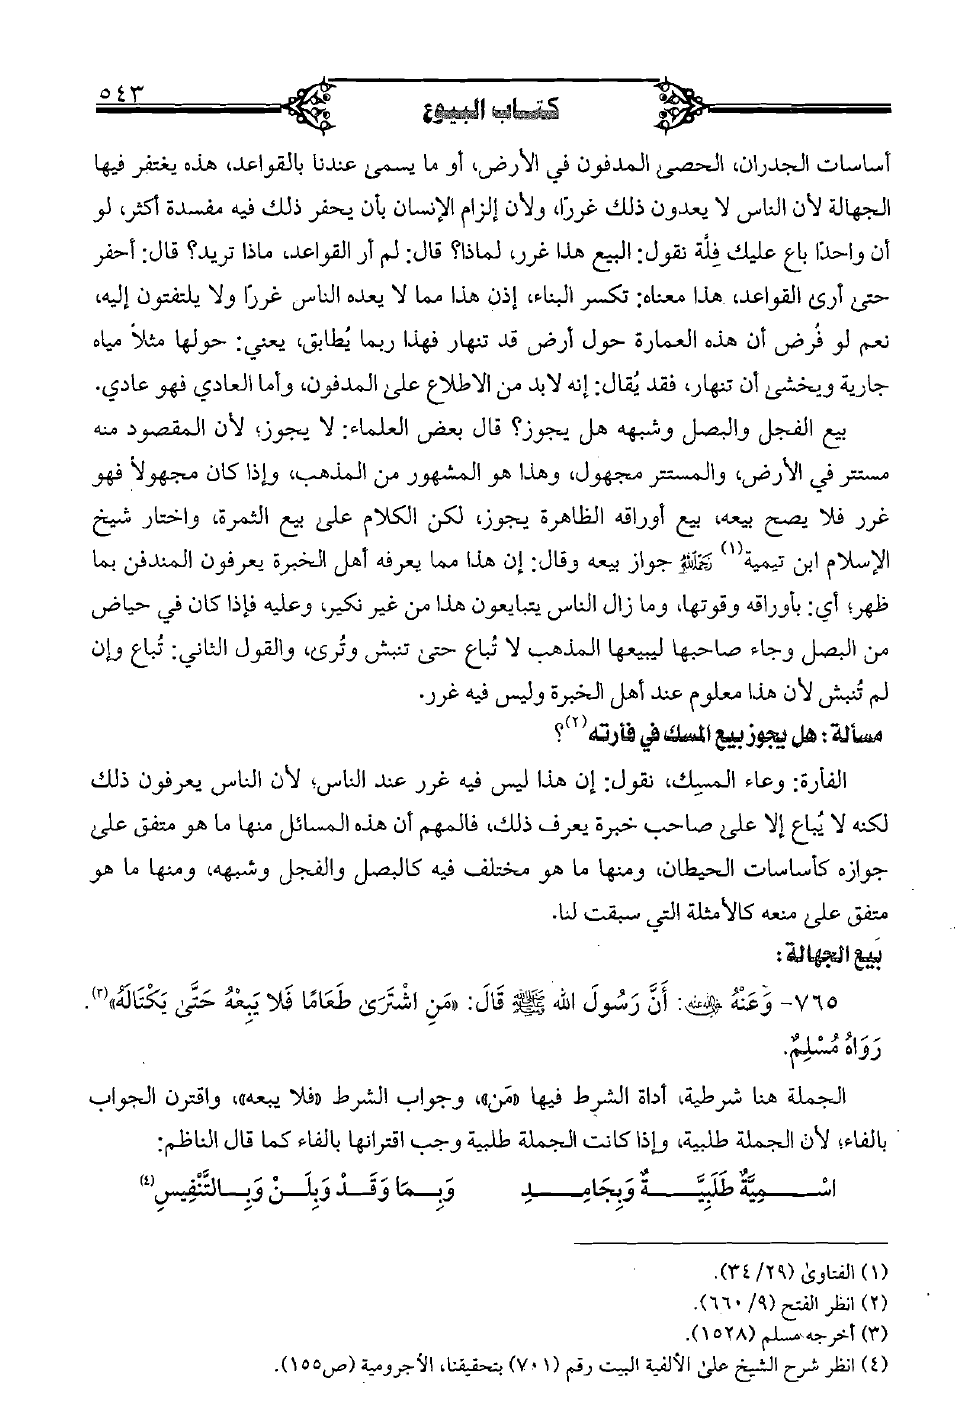 ٥٤٣
كتاب البيوع
أساسات الجدران، الحصى المدفون في الأرض، أو ما يسمى عندنا بالقواعد، هذه يغتفر فيها
الجهالة لأن الناس لا يعدون ذلك غررًا، ولأن إلزام الإنسان بأن يحفر ذلك فيه مفسدة أكثر، لو
أن واحدًا باع عليك فِلَّة نقول: البيع هذا غرر، لماذا؟ قال: لم أر القواعد، ماذا تريد؟ قال: أحفر
حتى أرى القواعد، هذا معناه: تكسر البناء، إذن هذا مما لا يعده الناس غررًا ولا يلتفتون إليه،
نعم لو فُرض أن هذه العمارة حول أرض قد تنهار فهذا ربما يُطابق، يعني: حولها مثلاً مياه
جارية ويخشى أن تنهار، فقد يُقال: إنه لابد من الاطلاع على المدفون، وأما العادي فهو عادي.
بيع الفجل والبصل وشبهه هل يجوز؟ قال بعض العلماء: لا يجوز؛ لأن المقصود منه
مستتر في الأرض، والمستتر مجهول، وهذا هو المشهور من المذهب، وإذا كان مجهولاً فهو
غرر فلا يصح بيعه، بيع أوراقه الظاهرة يجوز، لكن الكلام على بيع الثمرة، واختار شيخ
الإسلام ابن تيمية(١) رحمه الله جواز بيعه وقال: إن هذا مما يعرفه أهل الخبرة يعرفون المندفن بما
ظهر؛ أي: بأوراقه وقوتها، وما زال الناس يتبايعون هذا من غير نكير، وعليه فإذا كان في حياض
من البصل وجاء صاحبها ليبيعها المذهب لا تُباع حتى تنبش وتُرى، والقول الثاني: تُباع وإن
لم تُنبش لأن هذا معلوم عند أهل الخبرة وليس فيه غرر.
مسألة: هل يجوز بيع المسك في فأرته(٢)؟
الفأرة: وعاء المسِك، نقول: إن هذا ليس فيه غرر عند الناس؛ لأن الناس يعرفون ذلك
لكنه لا يُباع إلا على صاحب خبرة يعرف ذلك، فالمهم أن هذه المسائل منها ما هو متفق على
جوازه كأساسات الحيطان، ومنها ما هو مختلف فيه كالبصل والفجل وشبهه، ومنها ما هو
متفق على منعه كالأمثلة التي سبقت لنا.
بَيع الجهالة:
٧٦٥- وَعَنْهُ رضي الله عنه: أَنَّ رَسُولَ الله ﷺ قَالَ: «مَنِ اشْتَرَى طَعَامًا فَلا يَبِعْهُ حَتَّى يَكْتَالَهُ»(٣).
رَوَاهُ مُسْلِمٌ.
الجملة هنا شرطية، أداة الشرط فيها «مَن»، وجواب الشرط «فلا يبعه»، واقترن الجواب
بالفاء؛ لأن الجملة طلبية، وإذا كانت الجملة طلبية وجب اقترانها بالفاء كما قال الناظم:
اسْـمِيَّةٌ طَلَبِيَّـةٌ وَبِجَامِـدِ وَبِـمَا وَقَـدْ وَبِلَـنْ وَبِـالتَّنْفِيسِ(٤)
(١) الفتاوى (٢٩/ ٣٤).
(٢) انظر الفتح (٩/ ٦٦٠).
(٣) أخرجه مسلم (١٥٢٨).
(٤) انظر شرح الشيخ على الألفية البيت رقم (٧٠١) بتحقيقنا، الأجرومية (ص١٥٥).